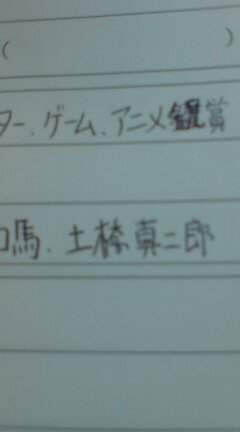 (　　　)
ター、ゲーム、アニメ鑑賞
馬、土橋真二郎